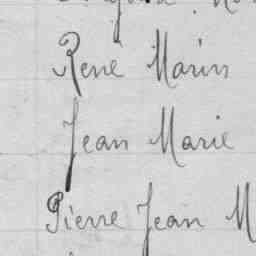 René Marin
Jean Marie
Pierre Jean M